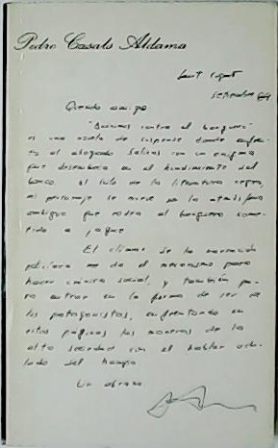 Pedro Casals Aldama
Sant Cugat
Setiembre
Querido amigo
"Disparos contra el banquero"
es una novela de suspense donde enfren-
to al abogado Salinas con un enigma
que desemboca en el hundimiento del
banco. Al hilo de la literatura negra,
mi personaje se mueve en la atmósfera
ambigua que rodea al banquero some-
tido a jaque
El clima de la narración
policíaca me da el necesario para
hacer crónica social, y también pa-
ra entrar en la forma de ser de
los protagonistas, enfrentando en
estas páginas las maneras de la
alta sociedad con el hablar
del hampa
Un abrazo